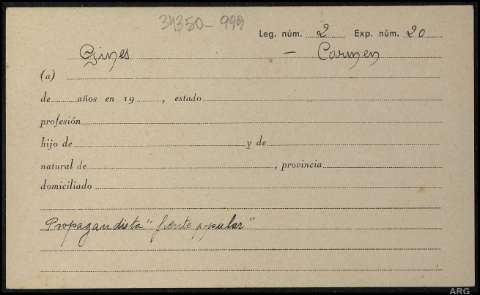 34350-999
Leg. núm. 2 Exp. núm. 20
Gines - Carmen
(a)
de años en 19 , estado
profesión
hijo de y de
natural de , provincia
domiciliado
Propagandista "frente popular"
ARG